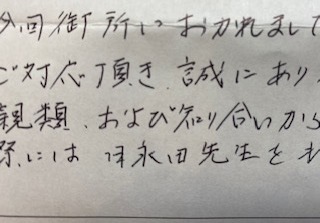 今回御所におかれまし
ご対応頂き、誠にあり
親類、および知り合いから
際には、永田先生を